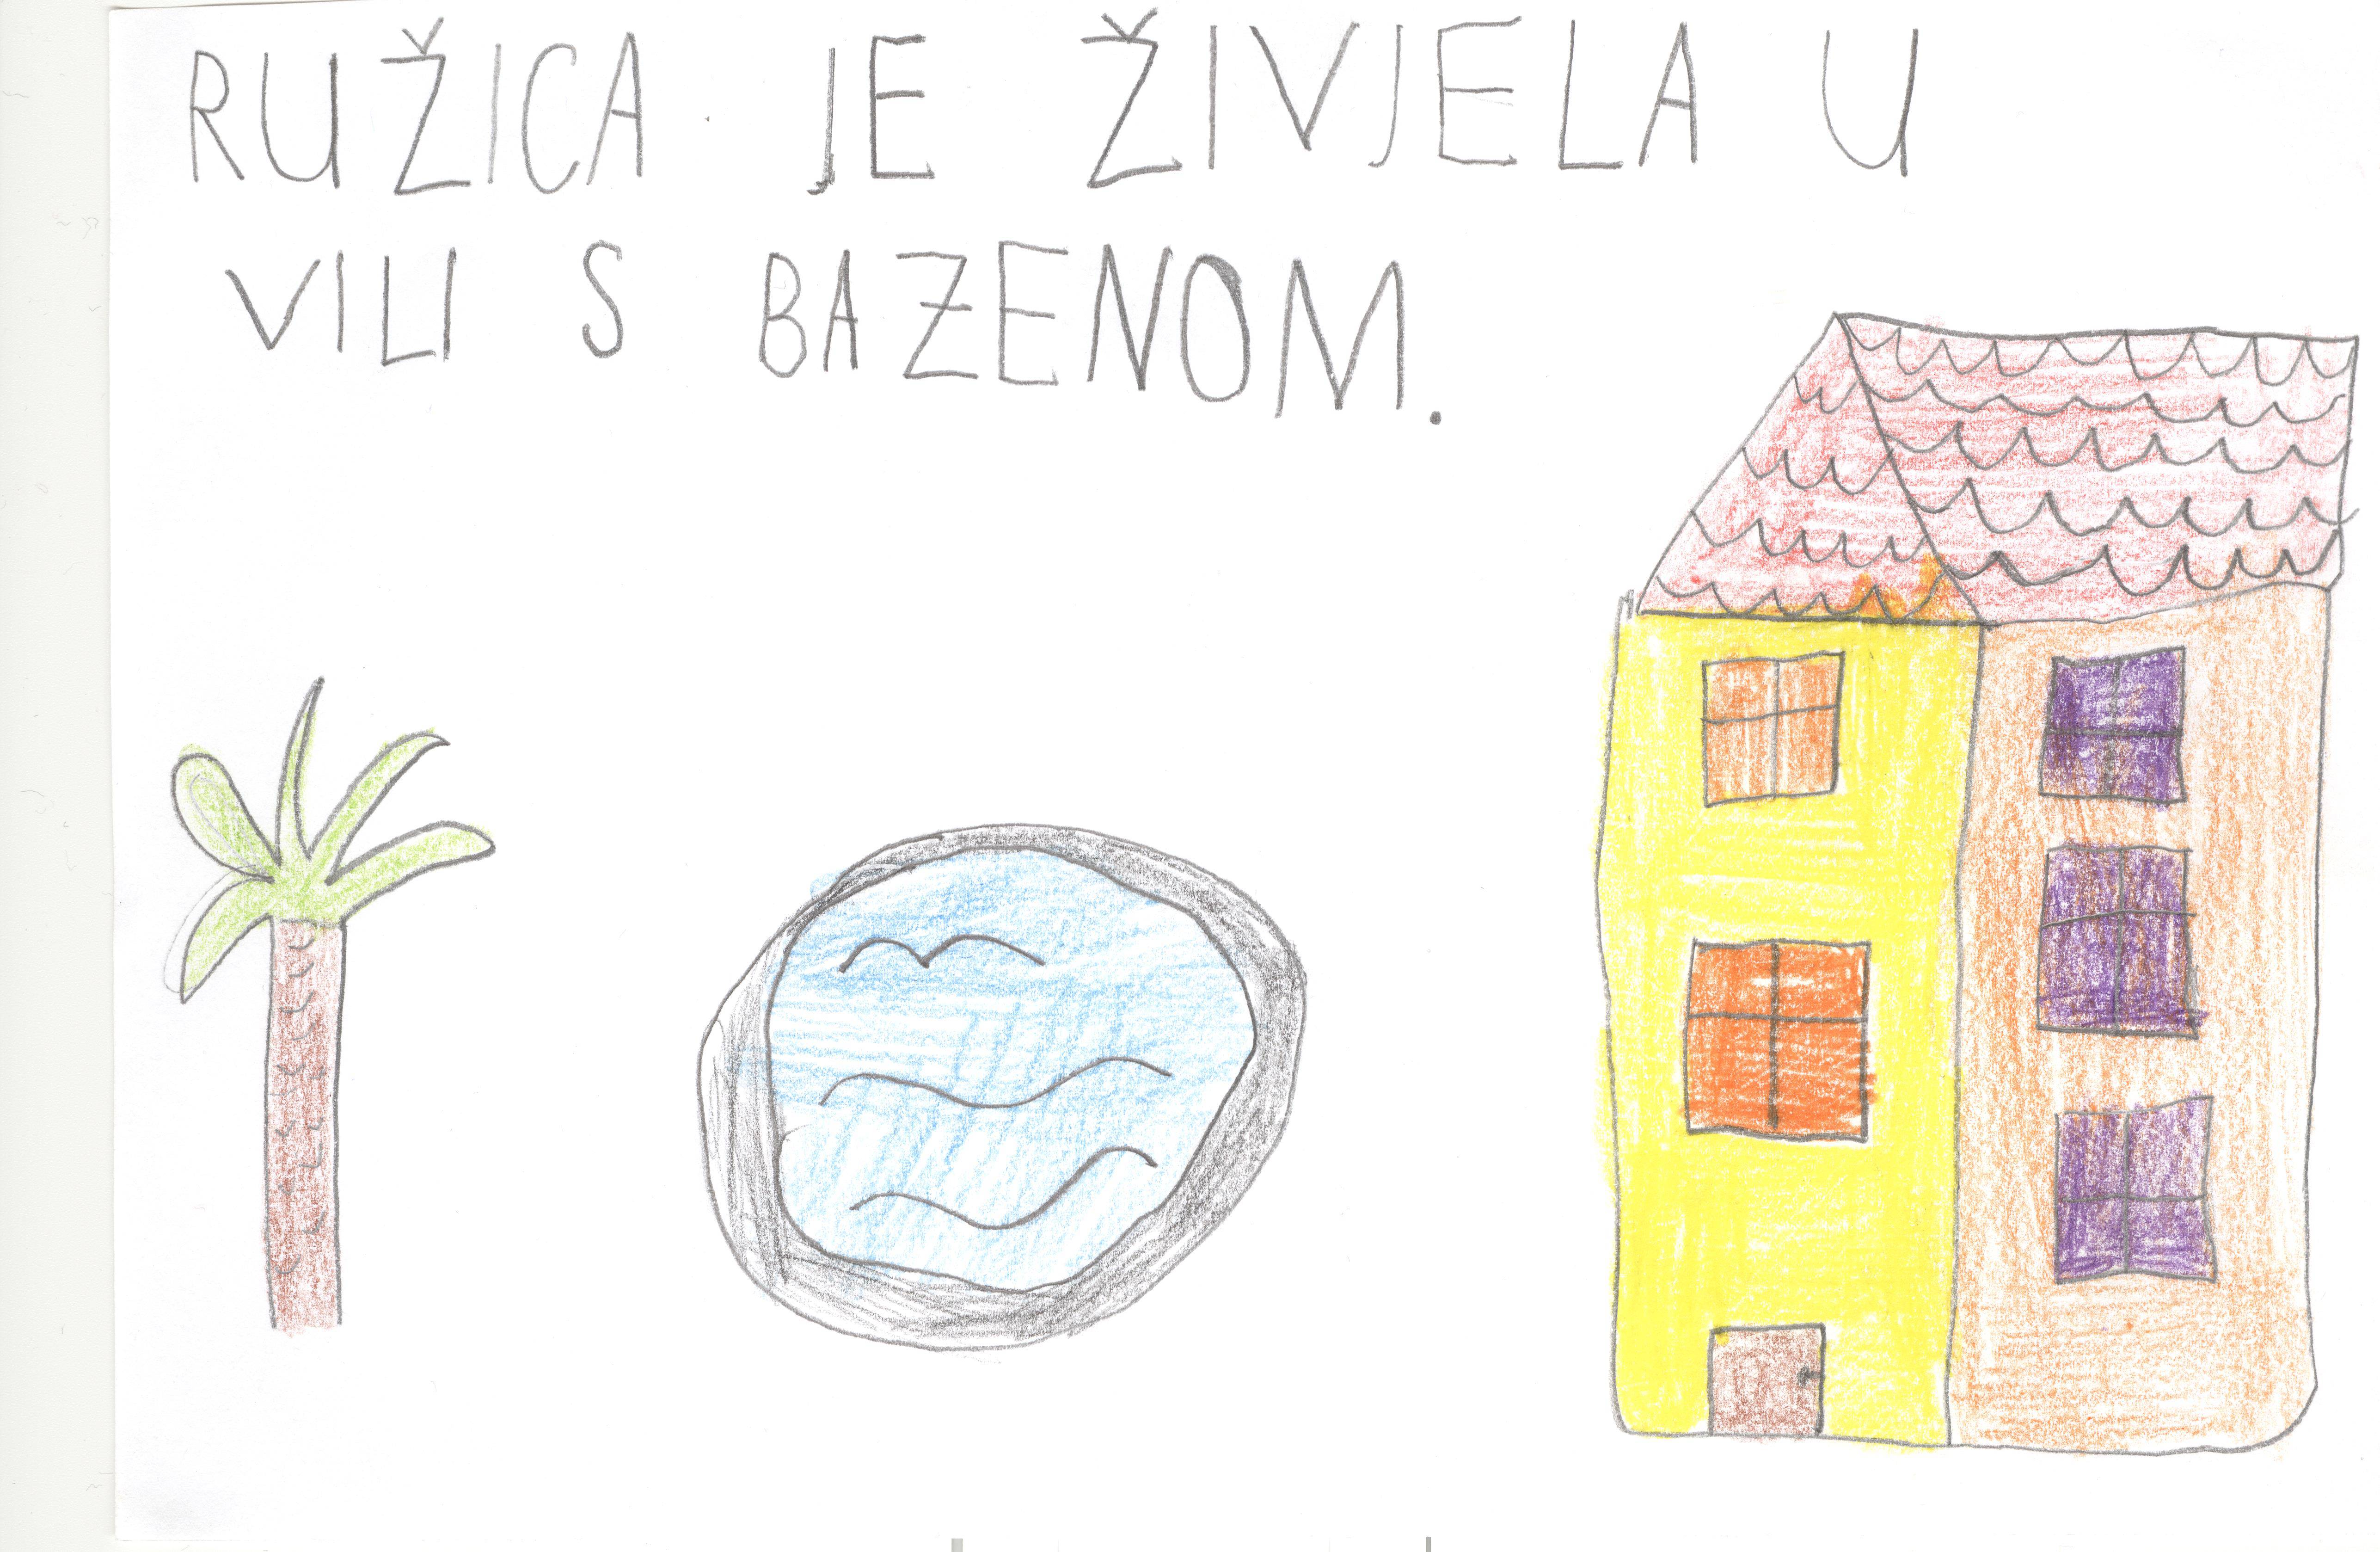 RUŽICA JE ŽIVJELA U
VILI S BAZENOM.